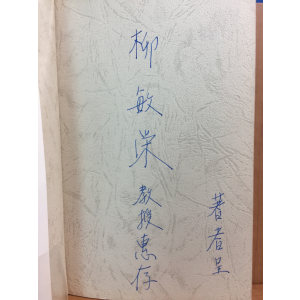 柳敏栄教授惠存
著者呈